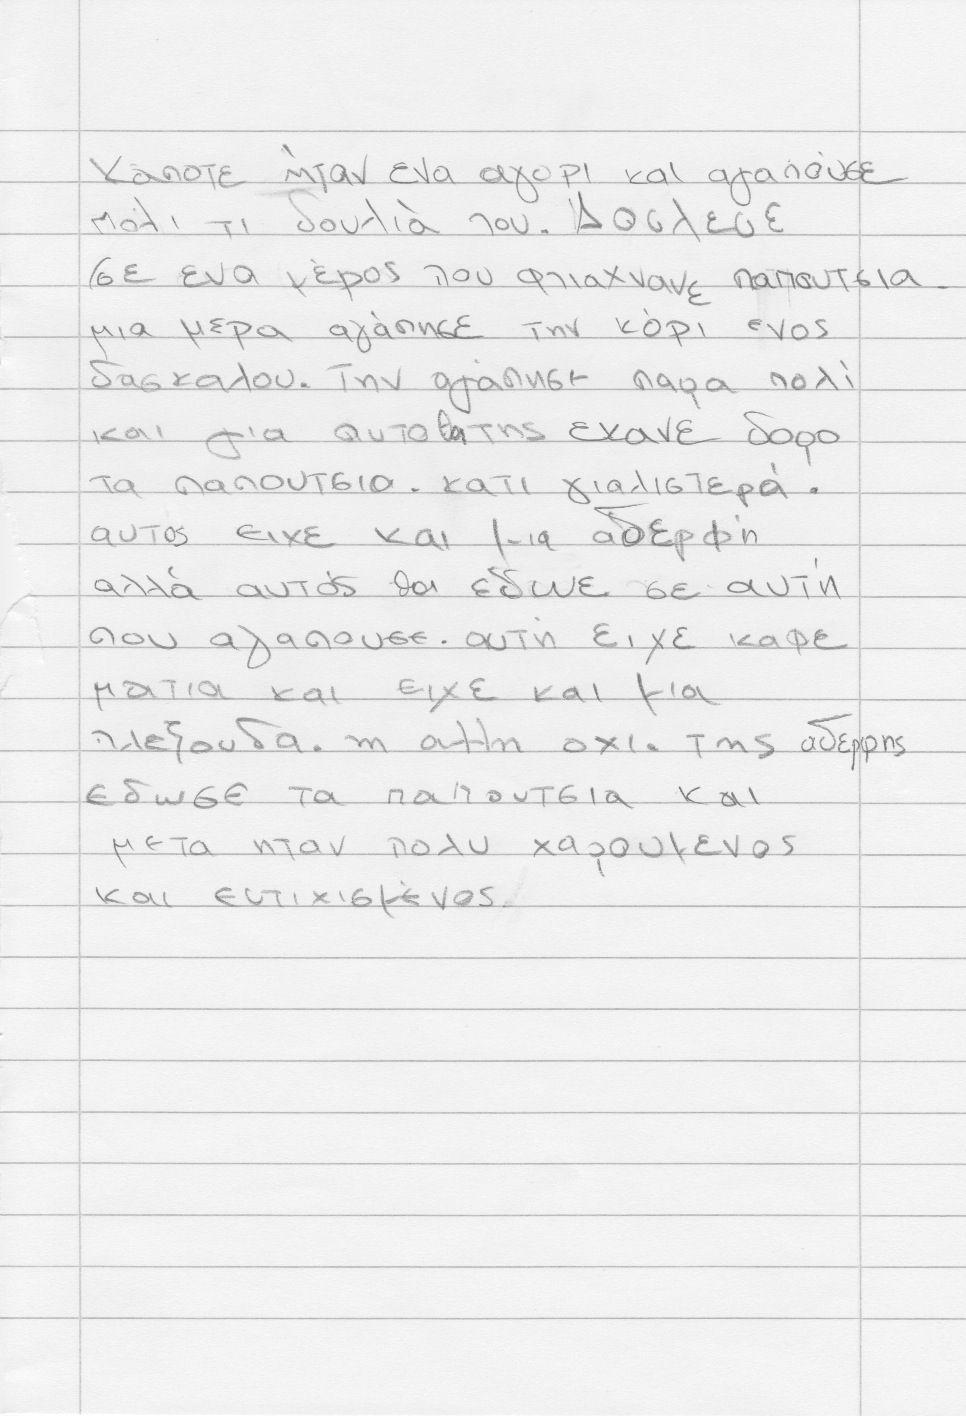 Κάποτε ήταν ενα αγορι και αγαπούσε
πολι τι δουλιά του. Δοσλεσε
σε ενα μέρος που φτιαχνανε παπουτσια.
μια μερα αγάπησε την κόρι ενος
δασκαλου. Την αγάπησε παρα πολί
και για αυτο θα της εκανε δορο
τα παπουτσια. κατι γιαλιστερά.
αυτός ειχε και μια αδερφή
αλλά αυτός θα έδωνε σε αυτή
που αγαπουσε. αυτή ειχε καφε
ματια και ειχε και μια
πλεξουδα. η αλλη οχι. της αδερφης
εδωσε τα παπουτσια και
μετα ηταν πολυ χαρουμενος
και ευτιχισμένος.